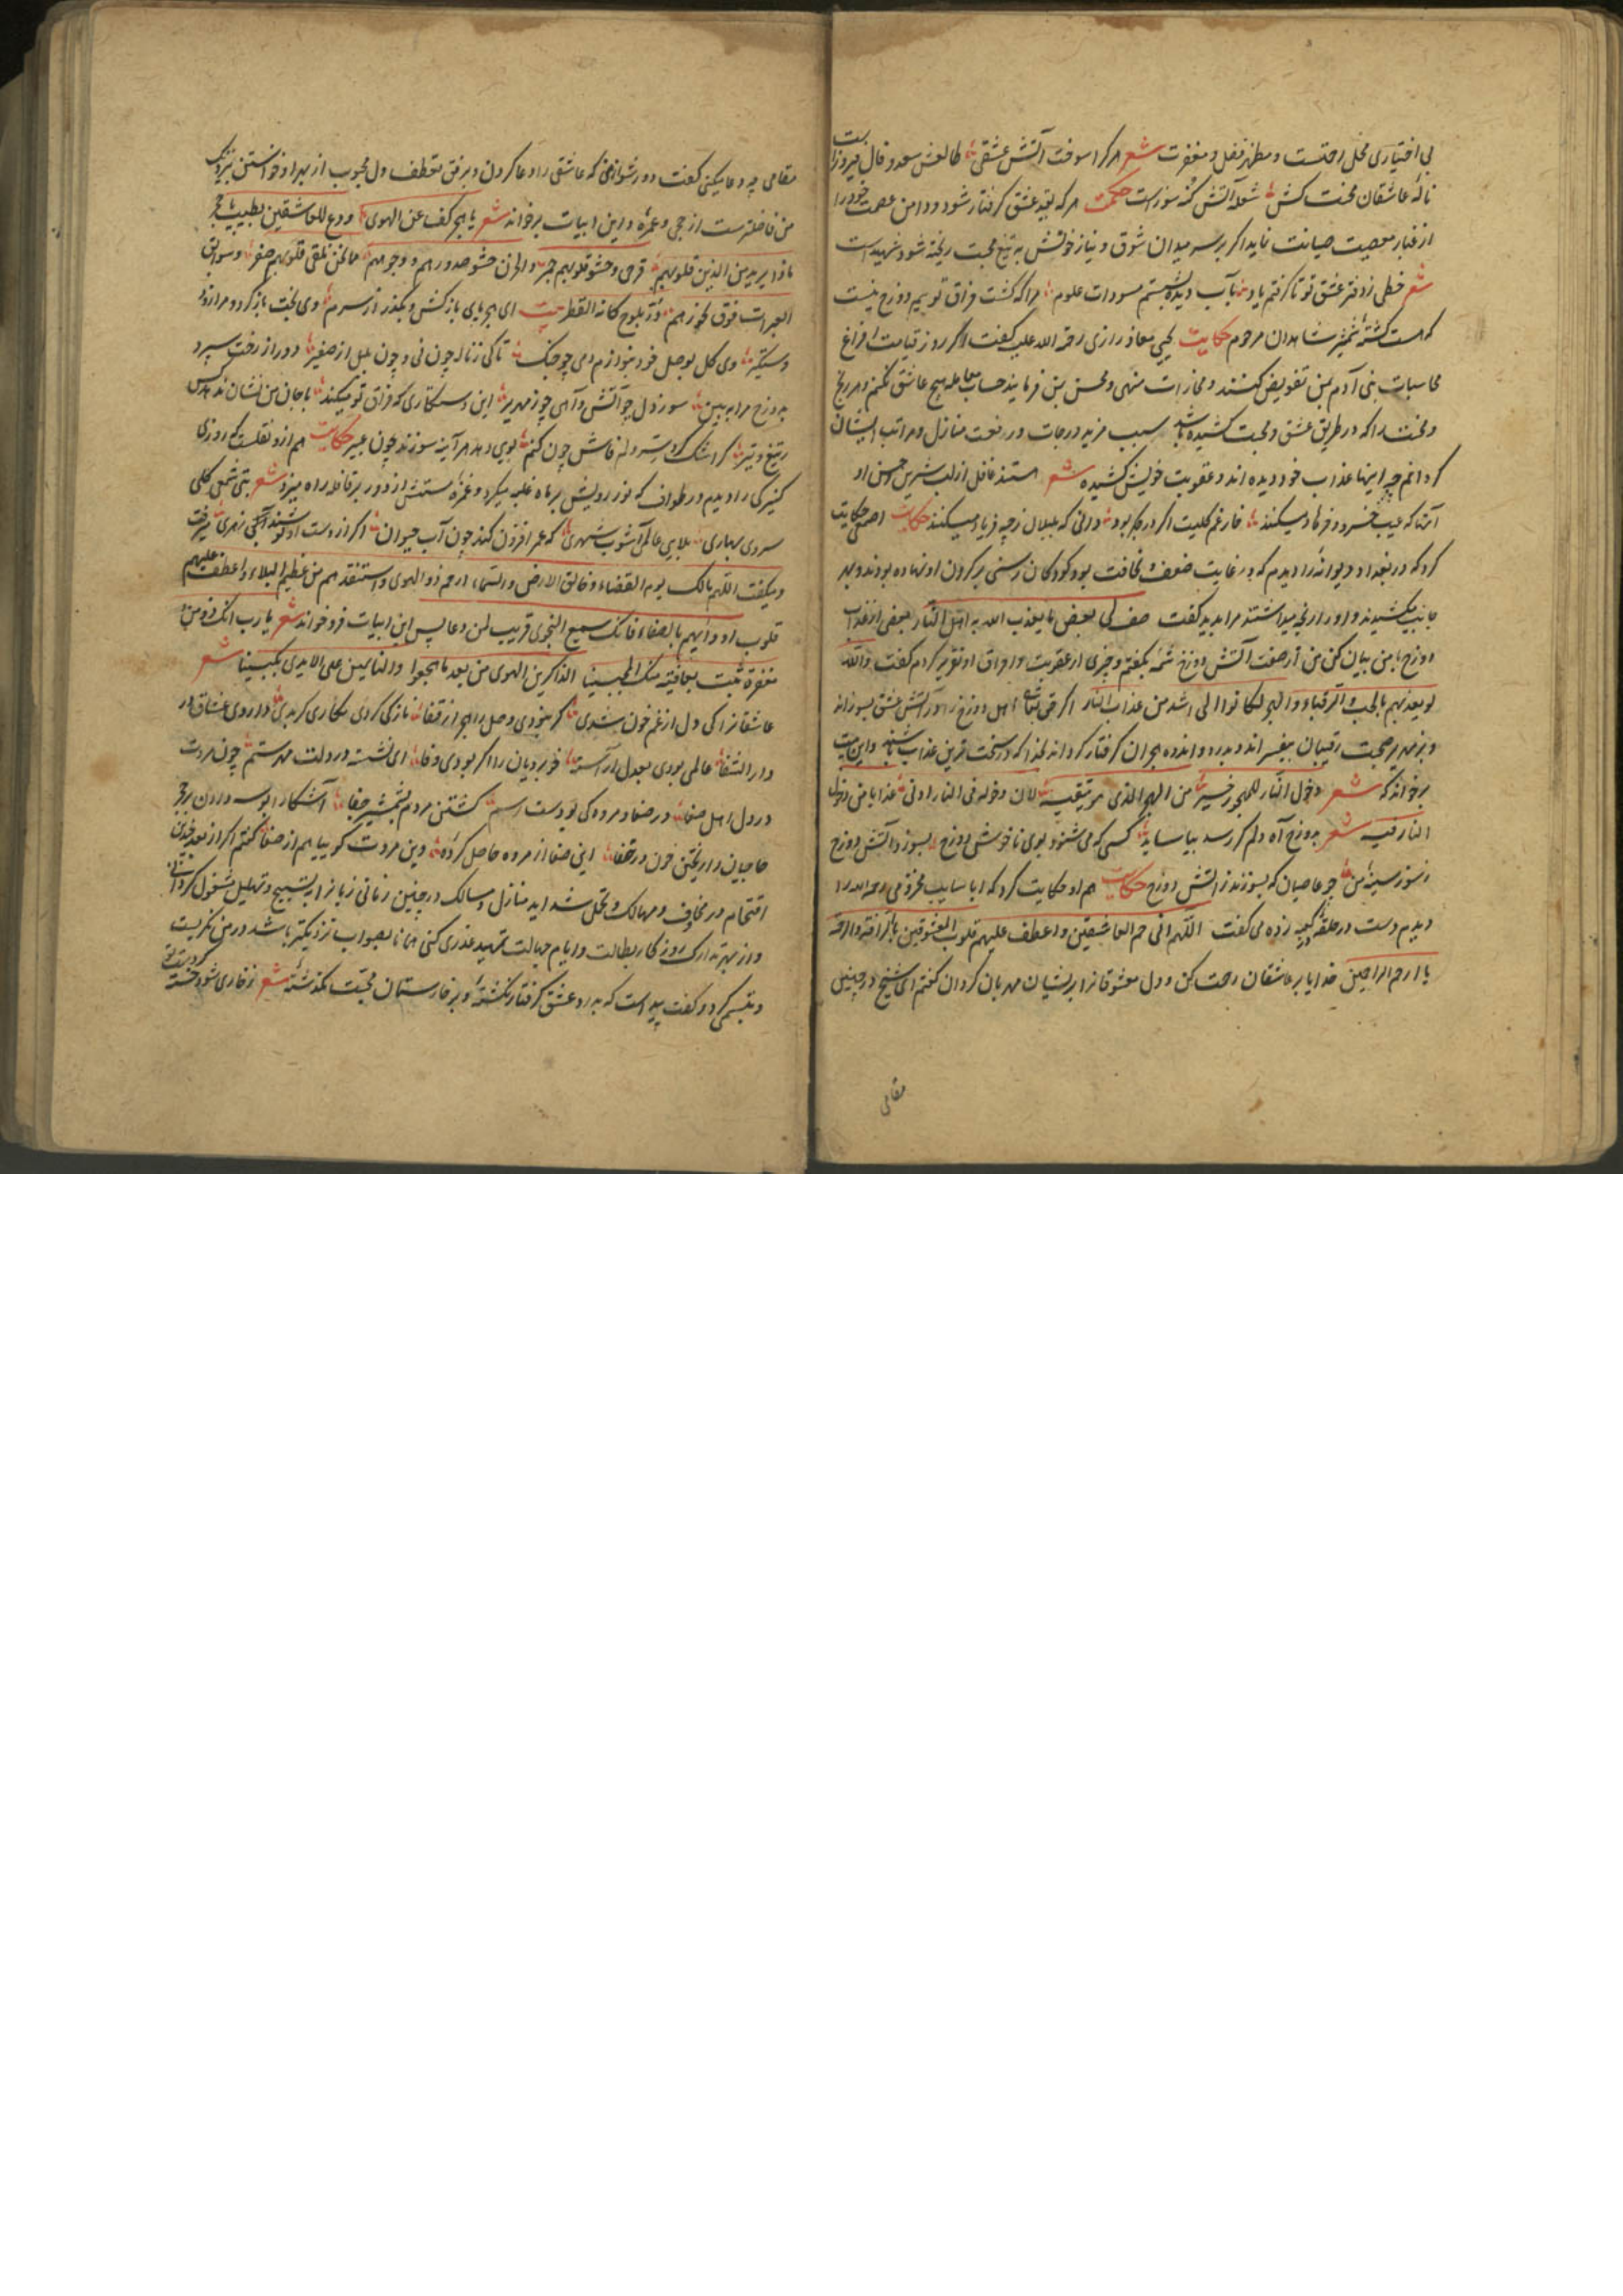 بی اختیاری محل رحمتست و مظهر فضل و مغفرت شعر هر کرا سوخت آتش عشقی طالعش سعد و فال فیروز است
نالهٔ عاشقان محنت کش شعلهٔ آتش گنه سوز است حکمت هر که بقید عشق گرفتار شود و دامن عصمت خود را
از غبار معصیت صیانت نماید اگر بر سر میدان شوق و نیاز خونش به تیغ محبت ریخته شود شهید است
شعر خطی ز دفتر عشق تو تا گرفتم یاد بآب دیده بشستم مسودات علوم مرا که کشت فراق تو بیم دوزخ نیست
که هست کشتهٔ شمشیر شاهدان مرحوم حکایت یحیی معاذ رازی رحمة الله علیه گفت اگر روز قیامت افراغ
محاسبات بنی آدم بمن تفویض کنند و مجازات من فرمایند حساب معامله هیچ عاشق نکنم و هر رنج
و محنت را که در طریق عشق و محبت کشیده باشد سبب مزید درجات و رفعت منازل و مراتب ایشان
گردانم چه اینها عذاب خود دیده اند و عقوبت خویش کشیده شعر هستند غافل از لب شیرین حسن او
آنها که عیب خسرو و فرهاد میکنند خار غم کلیت اگر در جگر بود دانی که بلبلان ز چه فریاد میکنند حکایت اصمعی حکایت
کرد که در بغداد دیوانهٔ را دیدم که در غایت ضعف و نحافت بود و کودکان رسنی بر گردن او نهاده بودند و بهر
جانب میکشیدند و او را رنجه میداشتند مرا بدید گفت صف لی بعض ما یعذب الله به اهل النار بعضی از عذاب
دوزخ با من بیان کن من از صفت آتش دوزخ شمهٔ بگفتم و چیزی از عقوبت و احراق او تقریر کردم گفت والله
لو یعذبهم بالحب و الرقباء و الهجر لکانوا فی اشد من عذاب النار اگر حق تعالی اهل دوزخ را در آتش عشق بسوزاند
و بزمهریر صحبت رقیبان بیفسراند و بدرد و اندوه هجران گرفتار گرداند لذاکه در سخت ترین عذاب باشند و این بیت
برخواند که شعر دخول النار للمهجور خیر من الهجر الذی هو یتقیه لان دخوله فی النار ادنی عذابا من دخول
النار فیه شعر بدوزخ آه دلم گر رسد بیاساید کسی که می شنود بوی ناخوش دوزخ بسوزد آتش دوزخ
ز سوز سینهٔ من چو عاصیان که بسوزند ز آتش دوزخ حکایت هم او حکایت کرد که ابا سایب مخزومی رحمه الله را
دیدم دست در حلقهٔ کعبه زده می گفت اللهم ارحم العاشقین و اعطف علیهم قلوب المعشوقین بالرافة و الرحمة
یا ارحم الراحمین خدایا بر عاشقان رحمت کن و دل معشوقانرا بر ایشان مهربان گردان گفتم ای شیخ در چنین
مقامی
مقامی چه دعا میکنی گفت دور شو از من که عاشقی را دعا کردن و بر فق تعطف دل محبوب از بهر او خواستن نزدیک
من فاضلترست از حجی و عمره و این ابیات برخواند شعر یا هجر کف عن الهوی و دع للعاشقین بطیب یا هجر
ماذا یرید من الذین قلوبهم قرحی و حشو قلوبهم جمر و الحزن حشو صدورهم و وجوههم مما تلقی قلوبهم صفر و سوابق
العبرات فوق نحورهم درر تلوح کانه القطر بیت ای هجر پای باز کش و بگذر از سرم وی بخت باز گرد و مرا روز
دستگیر وی گل بوصل خود بنوازم دمی چو چنگ تا کی ز ناله چون نی و چون بلبل از صفیر دور از رخت سپرد
بدوزخ مرا ببین سوز دل چو آتش و آهی چو زمهریر این دستکاری که فراق تو میکند با جان من نشان ندهد کس
ز تیغ و تیر گر اشک گرد شد و لم فاش چون کنم بویی دهد هر آینه سوزند چون عبیر حکایت هم ازو نقلست که روزی
کنیزکی را دیدم در طواف که نور رویش بر ماه غلبه میکرد و غمزهٔ مستش از دور بر قافله راه میزد شعر بتی شمعی گلی
سروی بهاری بلایی عالم آشوب شهری که عمر افزون کند چون آب حیوان اگر از دست او نوشند آنگهی زهری میگریخت
و میگفت اللهم مالک یوم القضاء و خالق الارض و السماء ارحم ذو الهوی و استنقذهم من عظیم البلاء و اعطف علیهم
قلوب اودائهم بالصفاء فانک سمیع النجوی قریب لمن دعا پس این ابیات فرو خواند شعر یا رب انک ذو من و
مغفرة ثبت بعافیة منک المحبینا الذاکرین الهوی من بعد ما هجعوا و النایمین علی الایدی مکبینا شعر
عاشقانرا کی دل از غم خون شدی گر نبودی وصل را هجر از قفا نازکی کردی ستمکاری گر بدی داروی عشاق در
دار الشفا عالمی بودی بعدل آراسته خوبرویان را اگر بودی وفا ای نشسته در دلت مهر ستم چون مروت
در دل اهل صفا در صفا و مروه کی بودست رسم کشتن مردم بشمشیر جفا آشکارا بوسه دادن بر حجر
حاجیان را ریختن خون در خفا این صفا از مروه حاصل کرده وین مروت گو بیابم از صفا گفتم اگر از بعد چندین
اقتحام در مخاوف و مهالک و تحمل شداید منازل و مسالک در چنین زمانی زبانرا به تسبیح و تهلیل مشغول گردانی
و از بهر تدارک روزگار بطالت و ایام جهالت تمهید عذری کنی همانا بصواب نزدیکتر باشد در من نگریست
و تبسمی کرد و گفت پیداست که بدرد عشق گرفتار نگشتهٔ و بر خارستان محبت نگذشتهٔ شعر ز خاری شود خسته